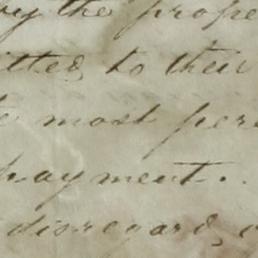 by the prope
itted to their
most per
payment.
disregard,